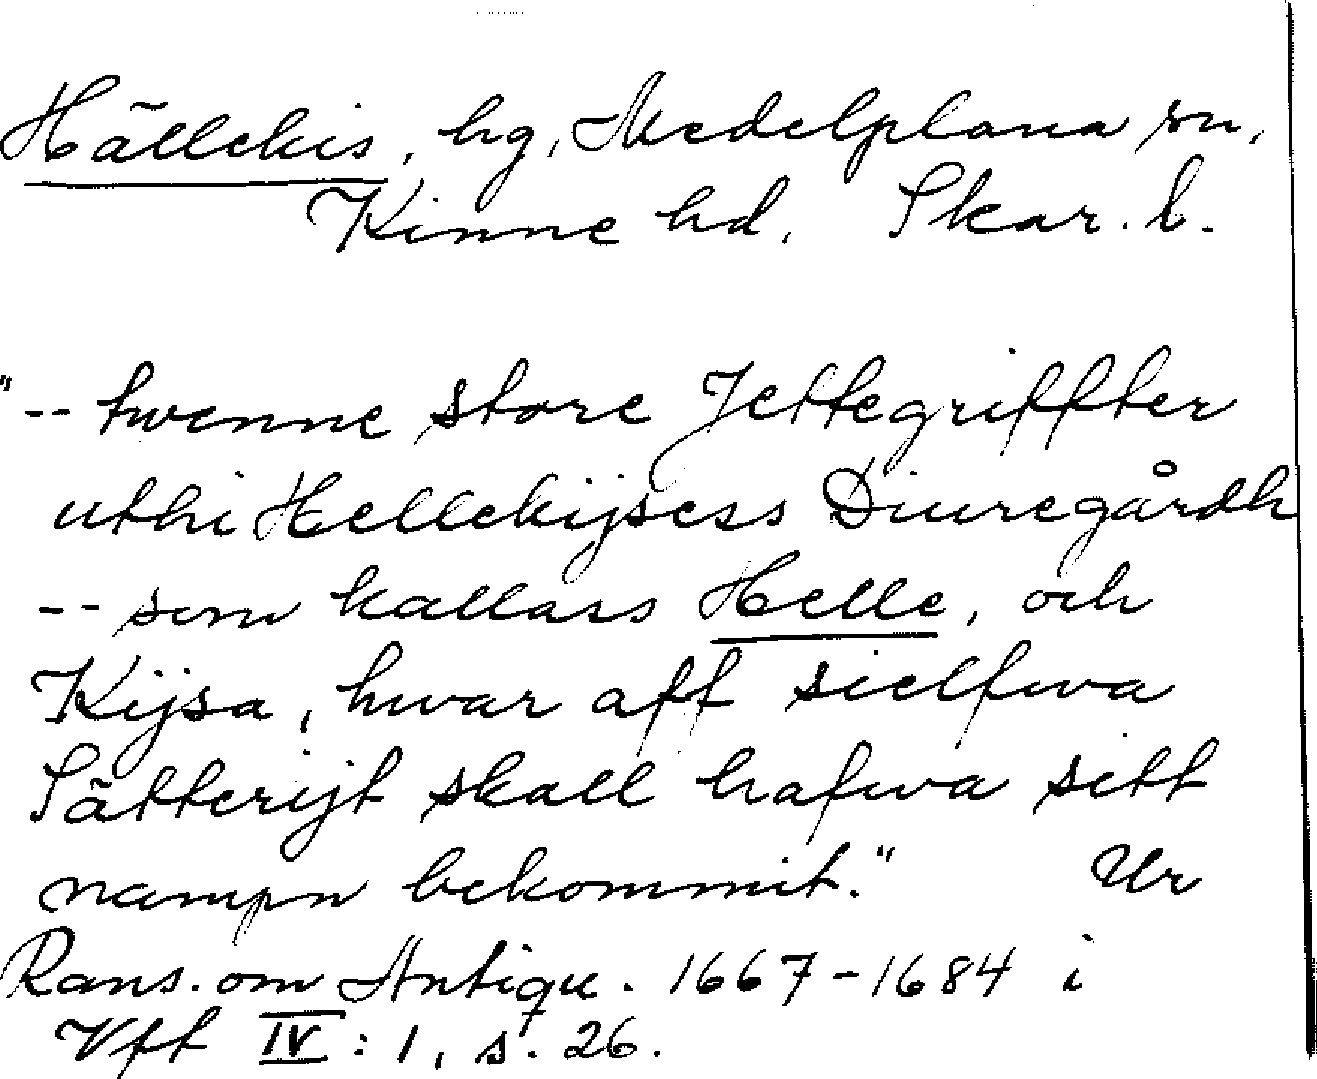 Hällekis, hg, Medelplana sn,
Kinne hd, Skar. l.
"-- twenne store Jettegriffter
uthi Hellekijsess Diuregårdh
-- som kallars Helle, och
Kijsa, hwar aff sielfwa
Sätterijt skall hafwa sitt
nampn bekommit." Ur
Rans. om Antiqu. 1667-1684 i
Vft IV:1, s. 26.